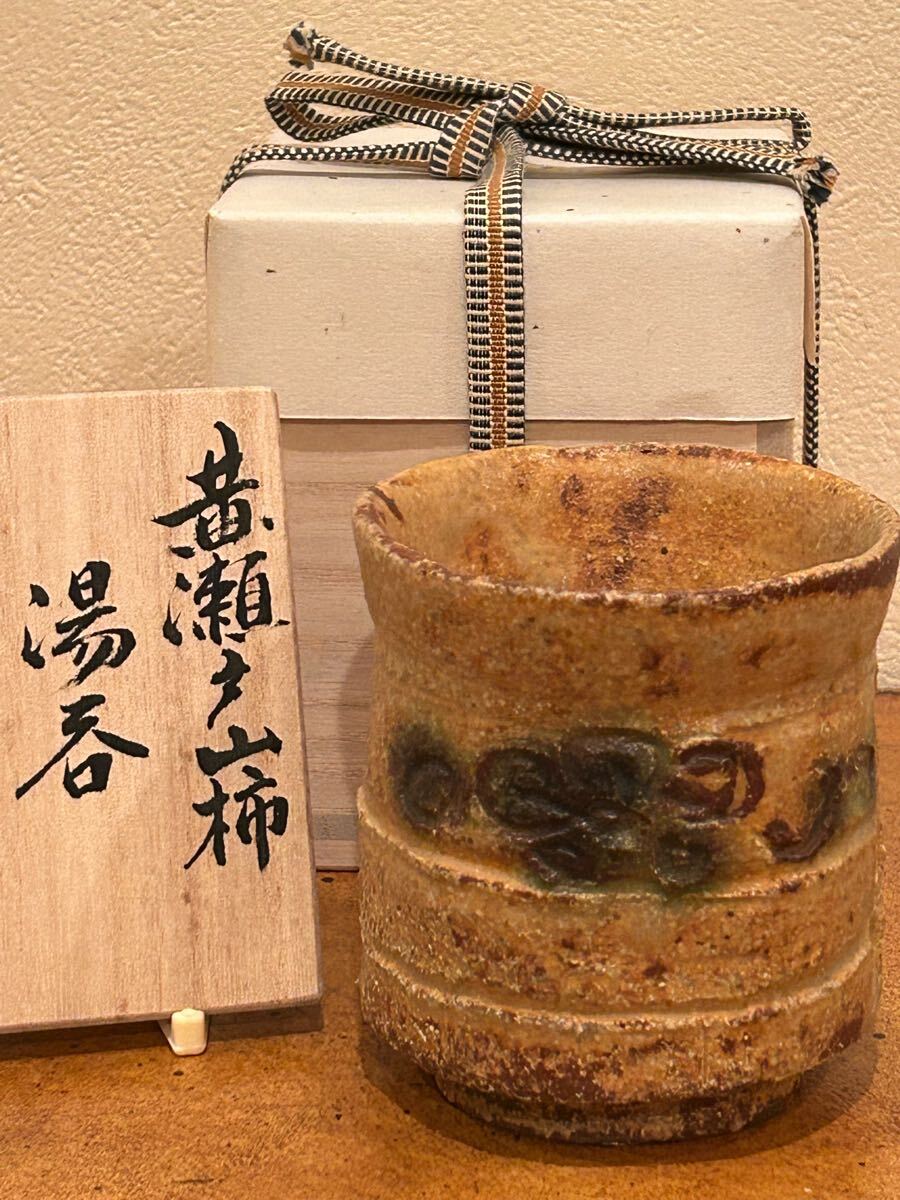 黄瀬戸山柿
湯呑